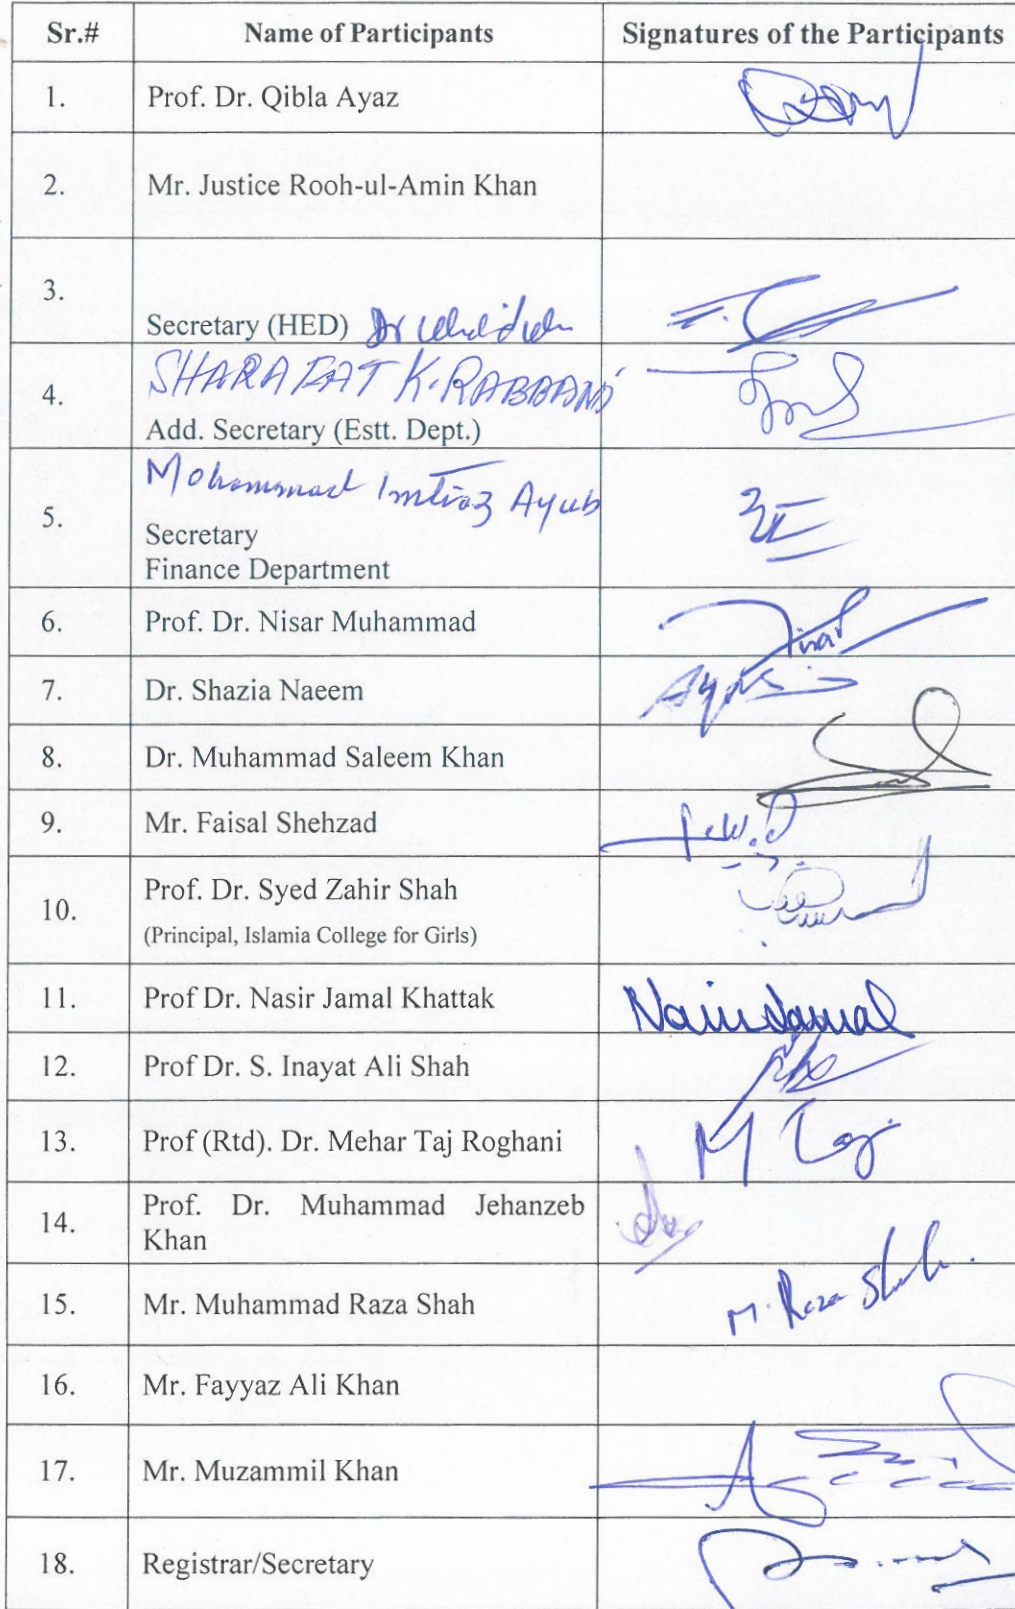 Sr.# Name of Participants Signatures of the Participants
1. Prof. Dr. Qibla Ayaz
2. Mr. Justice Rooh-ul-Amin Khan
3.
Secretary (HED) Dr
SHARAFAT K. RABBANI
4.
Add. Secretary (Estt. Dept.)
Mohammad Imtiaz Ayub
5.
Secretary
Finance Department
6. Prof. Dr. Nisar Muhammad
7. Dr. Shazia Naeem
8. Dr. Muhammad Saleem Khan
9. Mr. Faisal Shehzad
10.
Prof. Dr. Syed Zahir Shah
(Principal, Islamia College for Girls)
11. Prof Dr. Nasir Jamal Khattak
12. Prof Dr. S. Inayat Ali Shah
13. Prof (Rtd). Dr. Mehar Taj Roghani M Taj
14.
Prof. Dr. Muhammad Jehanzeb
Khan
15. Mr. Muhammad Raza Shah M. Raza Shah.
16. Mr. Fayyaz Ali Khan
17. Mr. Muzammil Khan
18. Registrar/Secretary